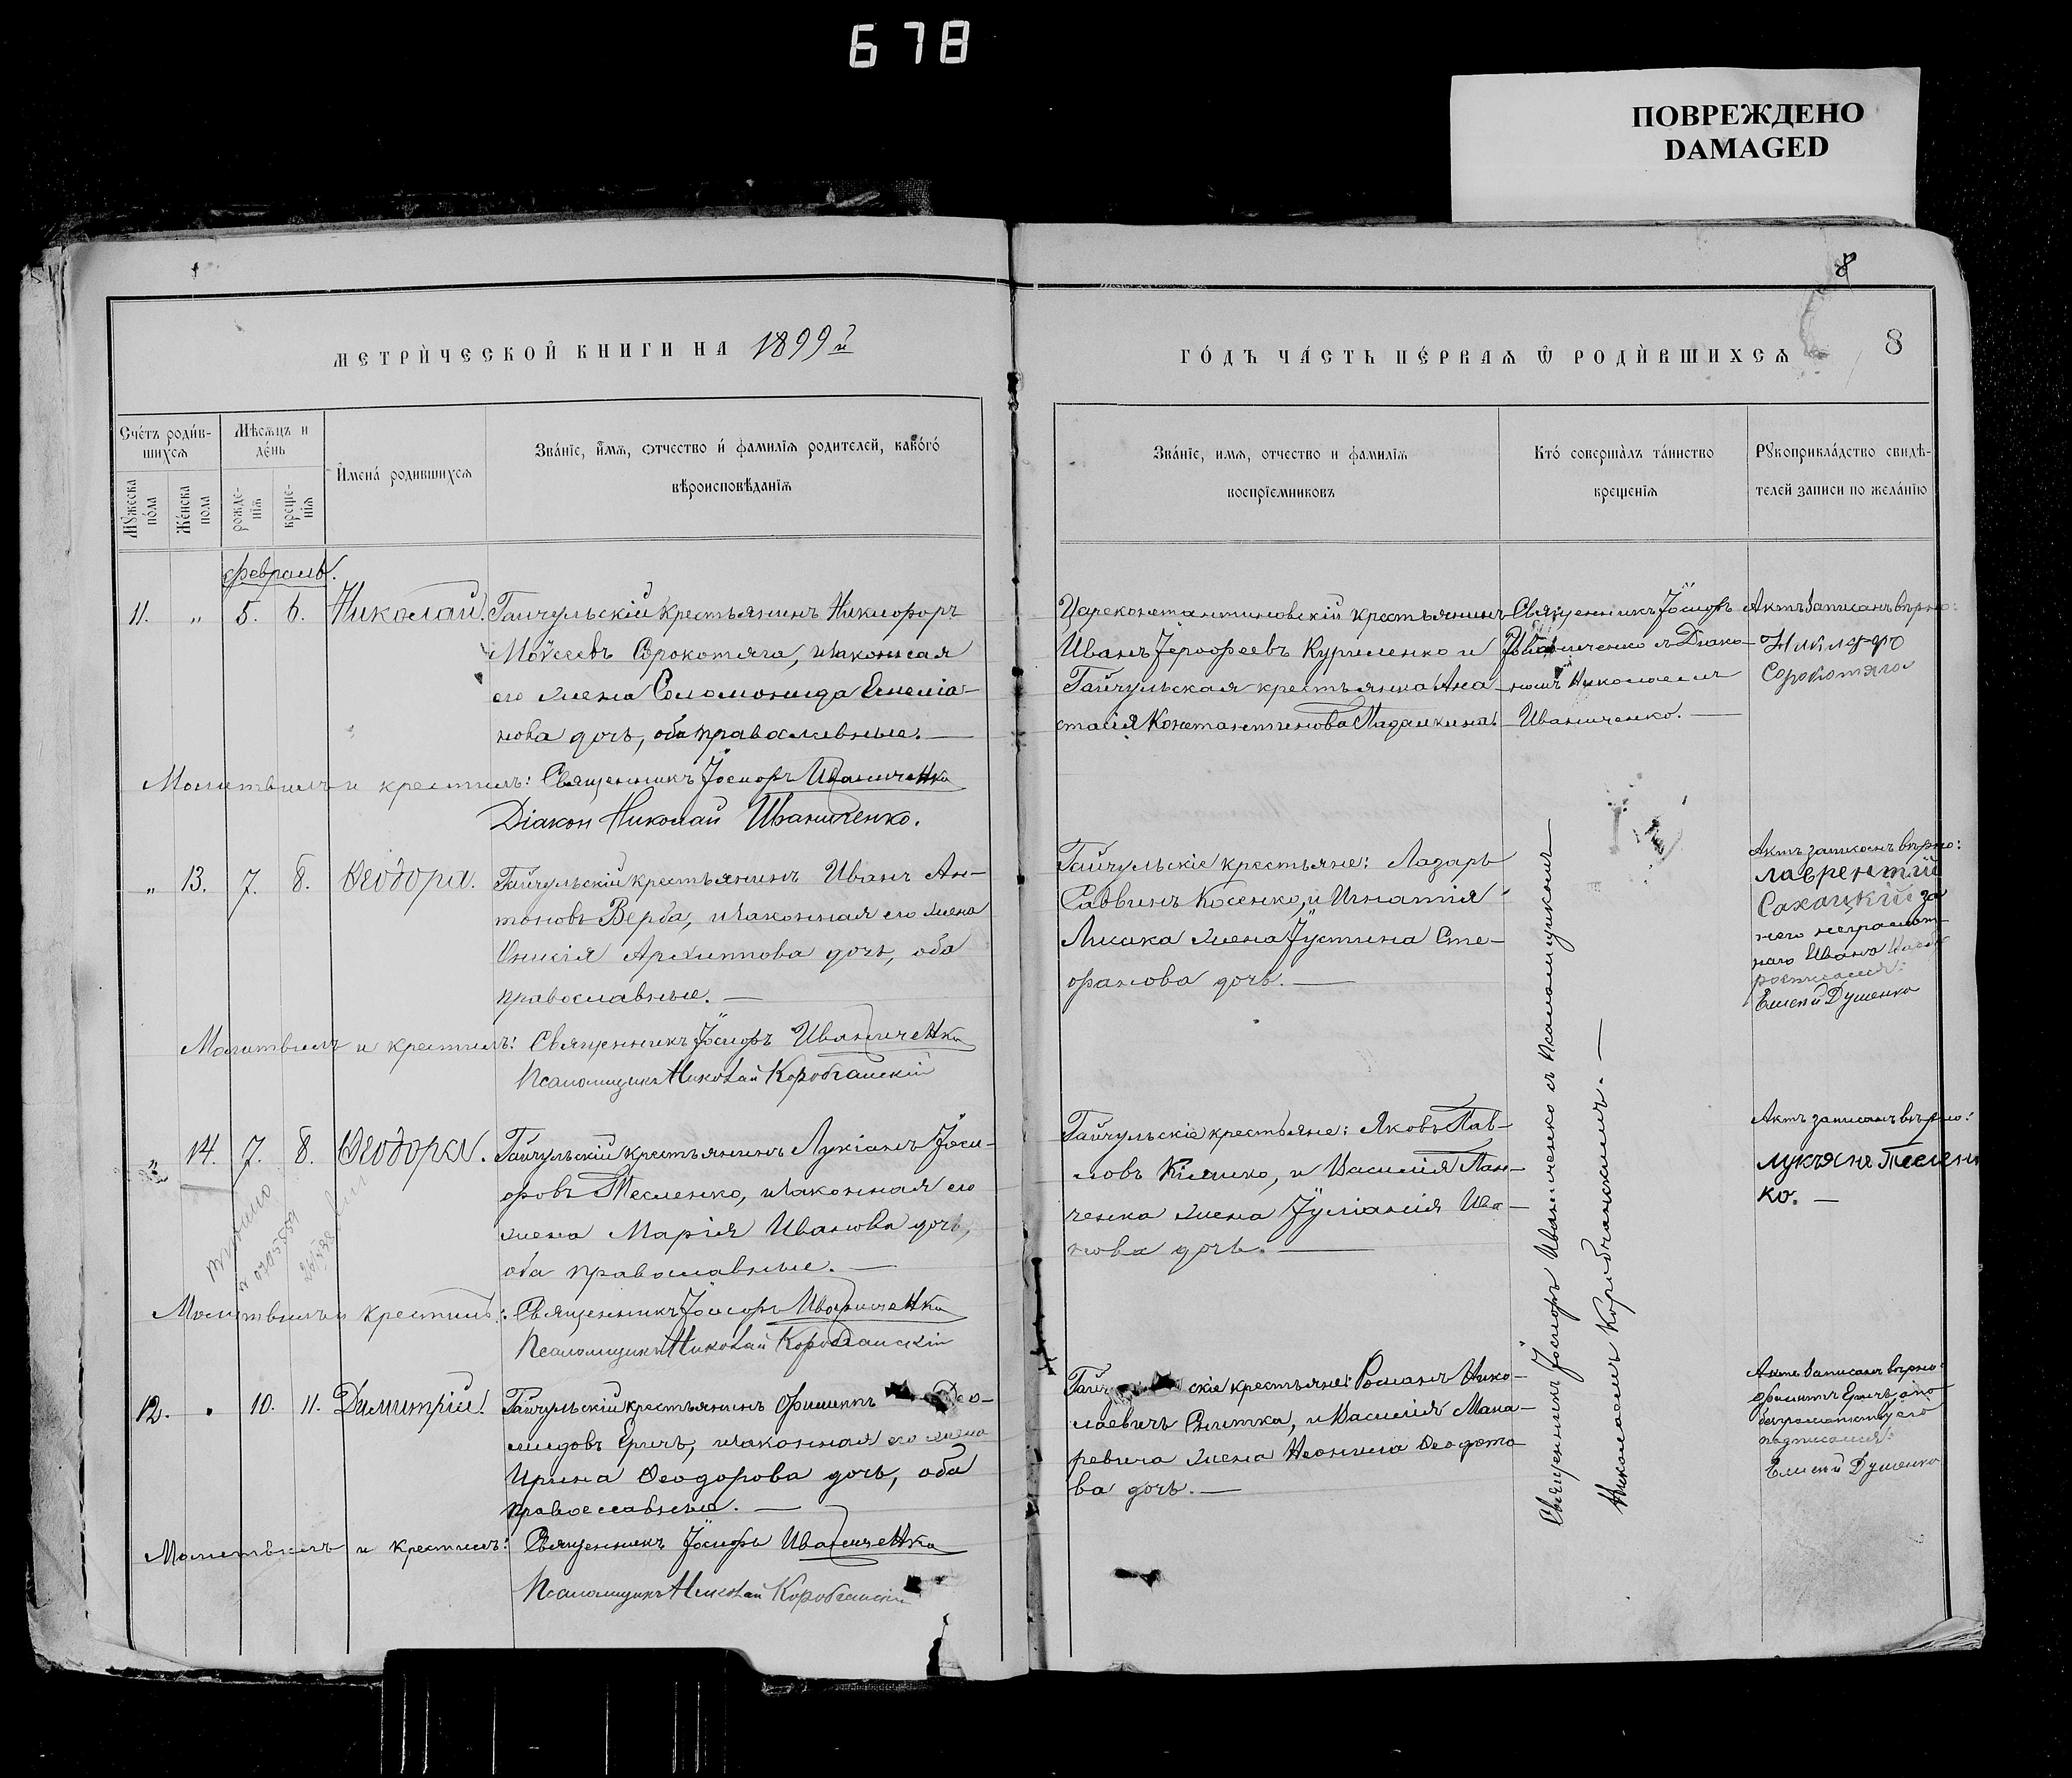 678
ПОВРЕЖДЕНО
DAMAGED
8
МЕТРИ́ЧЕСКОЙ КНИГИ НА 1899й
ГО́ДЪ ЧА́СТЬ ПЕ́РВАѦ Ѿ РОДИ́ВШИХСѦ
8
Сче́тъ роди́в-
шихсѧ
Мꙋжеска по́ла
Же́нска пола
Мѣсѧцъ и
де́нь
рожде-
нїѧ
креще-
нїѧ
И҆мена́ родившихсѧ
Зва́нїе, и҆мѧ, ѻтчество и҆ фамилїѧ родителей, како́го́
вѣроисповѣданїѧ
Зва́нїе, имѧ, отчество и фамилїѧ
воспрїемниковъ
Кто́ совершалъ та́инство
крещенїѧ
Рꙋкоприкла́дство свидѣ-
телей записи по жела́нїю
Февраль.
11. " 5. 6. Николай.
Гайчульскій крестьянинъ Никифоръ
Моѵсеевъ Сорокотяга, и законная
его жена Соломонида Емелиа-
нова дочь, оба православные. —
Цареконстантиновскій крестьянинъ
Иванъ Іерофеевъ Куриленко и
Гайчульская крестьянка Ана-
стасія Константинова
Священникъ Іосифъ
Иваниченко съ Діако-
номъ Николаемъ
Иваниченко. —
Актъ записанъ вѣрно:
Никифо
Сорокотяга
Молитвилъ и крестилъ: Священникъ Іосифъ Иваниченко
Діакон Николай Иваниченко.
" 13. 7. 8. Ѳеодора.
Гайчульскій крестьянинъ Иванъ Ан-
тоновъ Верба, и законная его жена
Архиппова дочь, оба
православные. —
Гайчульскіе крестьяне: Лазарь
Саввинъ Косенко, и Игнатія
жена Іустина Сте-
фанова дочь. —
Священникъ Іосифъ Иваниченко съ Псаломщикомъ
Николаемъ Коробчанскимъ. —
Актъ записанъ вѣрно:
Лаврентій
Сахацкій за
него неграмот-
наго Ивана
росписался:
Елисей Душенко
Молитвилъ и крестилъ: Священникъ Іосифъ Иваниченко
Псаломщикъ Николай Коробчанскій
" 14. 7. 8. Ѳеодора.
Гайчульскій крестьянинъ Лукіанъ Іоси-
фовъ Тесленко, и законная его
жена Марія Иванова дочь,
оба православные. —
Гайчульскіе крестьяне: Яковъ Пав-
ловъ и Василія Пан-
ченка жена Іуліанія Ива-
нова дочь. —
Актъ записанъ вѣрно:
Лукъяне Теслен
ко. —
Молитвилъ и крестилъ: Священникъ Іосифъ Иваниченко
Псаломщикъ Николай Коробчанскій
12. " 10. 11. Димитрій.
Гайчульскій крестьянинъ Филиппъ Део-
мидовъ Еричъ, и законная его жена
Ирина Ѳеодорова дочь, оба
православные. —
Гайч скіе крестьяне: Романъ Нико-
лаевичъ Снитка, и Василія Мака-
ревича жена Неонила Ѳеодото-
ва дочь. —
Актъ записанъ вѣрно:
Филиппъ Еричъ, а по
безграмотству его
подписался:
Елисей Душенко
Молитвилъ и крестилъ: Священникъ Іосифъ Иваниченко
Псаломщикъ Николай Коробчанскій